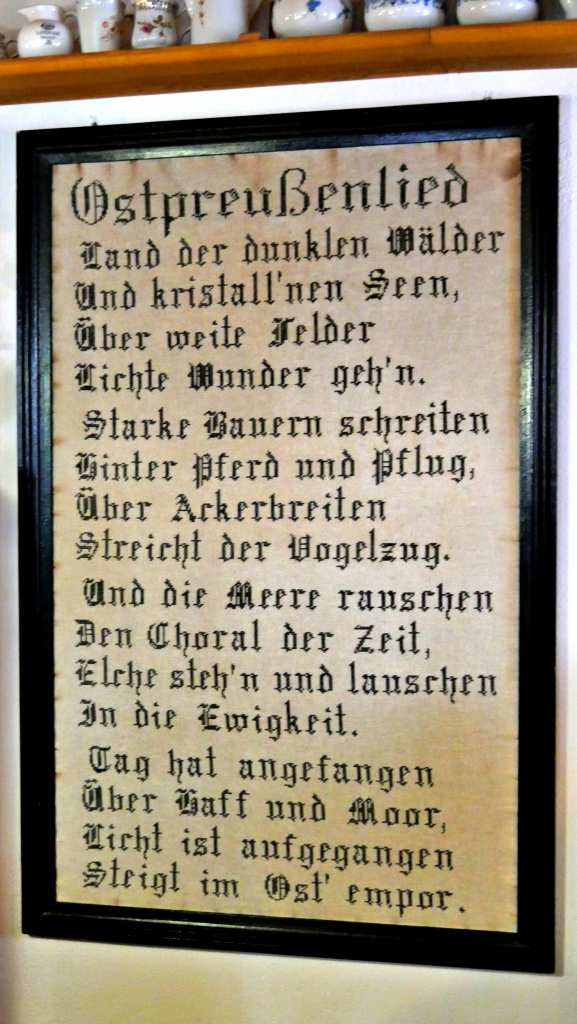 Ostpreußenlied
Land der dunklen Wälder
Und kristall'nen Seen,
Über weite Felder
Lichte Wunder geh'n.
Starke Bauern schreiten
Hinter Pferd und Pflug,
Über Ackerbreiten
Streicht der Vogelzug.
Und die Meere rauschen
Den Choral der Zeit,
Elche steh'n und lauschen
In die Ewigkeit.
Tag hat angefangen
Über Haff und Moor,
Licht ist aufgegangen
Steigt im Ost' empor.